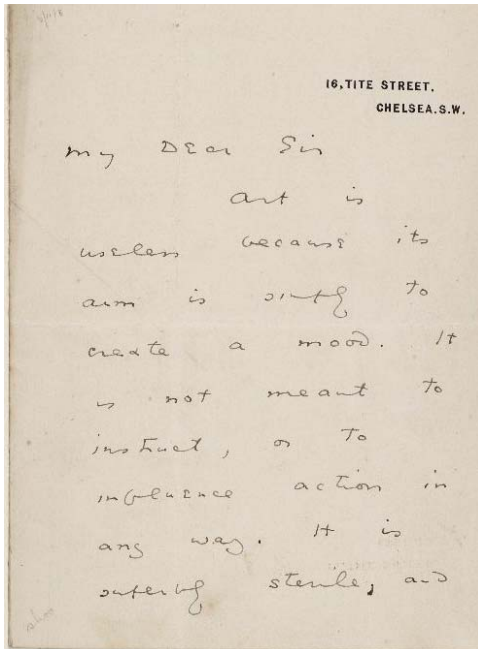 16, TITE STREET.
CHELSEA. S.W.
My Dear Sir
Art is
useless because its
aim is simply to
create a mood. It
is not meant to
instruct, or to
influence action in
any way. It is
superbly sterile, and